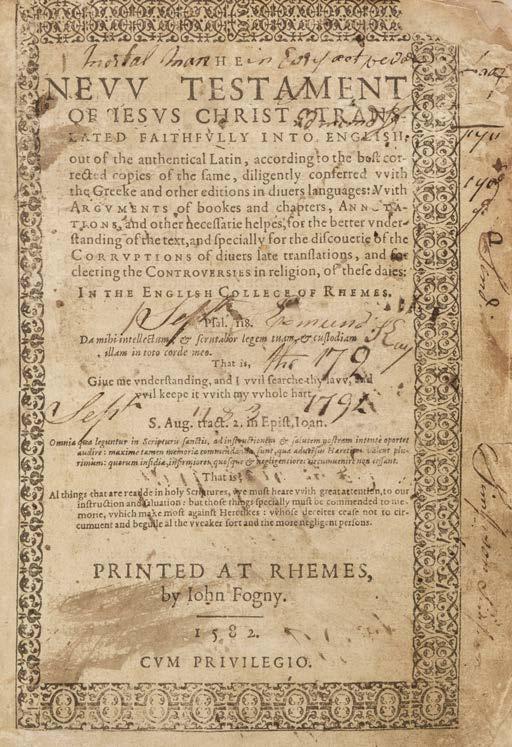 mortal man
HE
NEVV TESTAMENT
OF IESVS CHRIST, TRANS-
LATED FAITHFVLLY INTO ENGLISH,
out of the authentical Latin, according to the best cor-
rected copies of the same, diligently conferred vvith
the Greeke and other editions in diuers languages: Vvith
ARGVMENTS of bookes and chapters, ANNOTA-
TIONS, and other necessarie helpes, for the better vnder-
standing of the text, and specially for the discouerie of the
CORRVPTIONS of diuers late translations, and for
cleering the CONTROVERSIES in religion, of these daies:
IN THE ENGLISH COLLEGE OF RHEMES.
Psal. 118.
Da mihi intellectum, & scrutabor legem tuam, & custodiam
illam in toto corde meo.
That is,
Giue me vnderstanding, and I vvil searche thy lavv, and
vvil keepe it vvith my vvhole hart.
Sept 1783 1791
S. Aug. tract. 2. in Epist. Ioan.
Omnia quæ leguntur in Scripturis sanctis, ad instructionem & salutem nostram intente oportet
audire: maxime tamen memoriæ commendanda sunt, quæ aduersus Hæreticos valent plu-
rimum: quorum insidiæ, infirmiores quosque & negligentiores circumuenire non cessant.
That is,
Al things that are readde in holy Scriptures, vve must heare vvith great attention, to our
instruction and saluation: but those things specially must be commended to me-
morie, vvhich make most against Heretikes: vvhose deceites cease not to cir-
cumuent and beguile al the vveaker sort and the more negligent persons.
PRINTED AT RHEMES,
by Iohn Fogny.
1582.
CVM PRIVILEGIO.